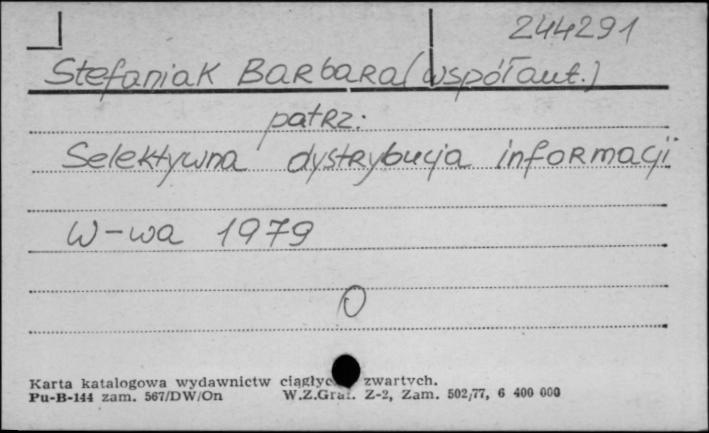 244291
Stefaniak Barbara (współaut.)
patrz:
Selektywna dystrybucja informacji
W-wa 1979
O
Karta katalogowa wydawnictw zwartych.
Pu-B-144 zam. 567/DW/On W.Z.Graf. Z-2, Zam. 502/77, 6 400 000